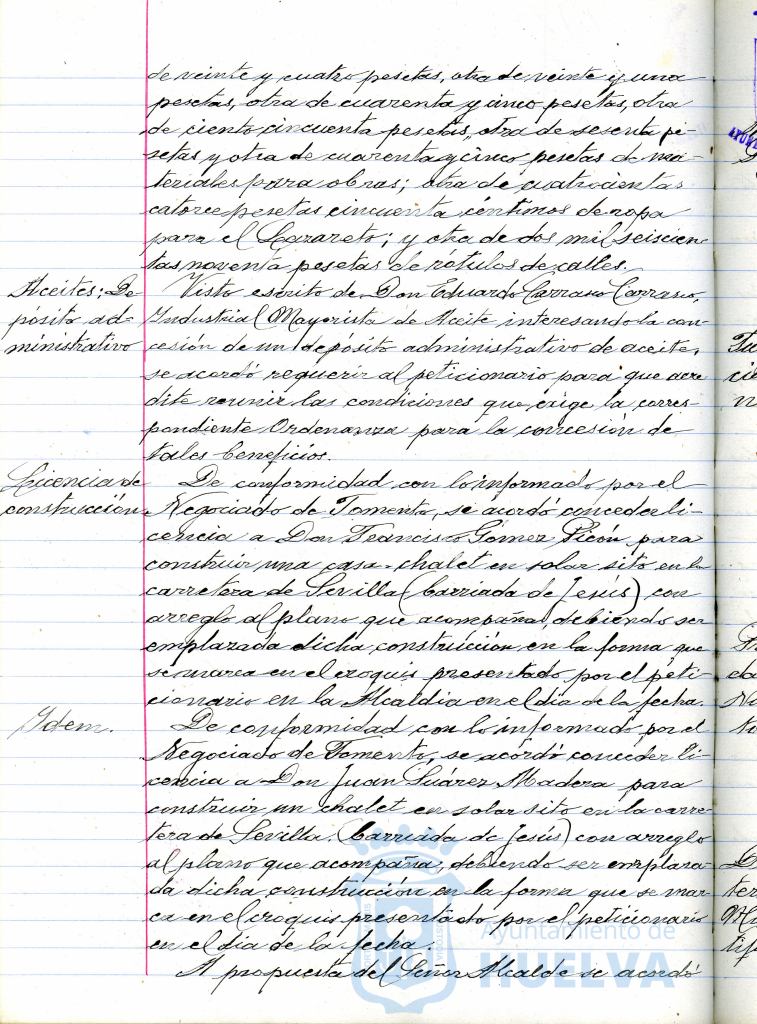 de veinte y cuatro pesetas, otra de veinte y una
pesetas, otra de cuarenta y cinco pesetas, otra
de ciento cincuenta pesetas, otra de sesenta pe-
setas y otra de cuarenta y cinco pesetas de ma-
teriales para obras; otra de cuatrocientas
catorce pesetas cincuenta céntimos de ropa
para el Lazareto; y otra de dos mil seiscien-
tas noventa pesetas de rótulos de calles.
Aceites: De
pósito ad-
ministrativo
Visto escrito de Don Eduardo Carrasco Carrasco,
Industrial Mayorista de Aceite interesando la con-
cesión de un depósito administrativo de aceite,
se acordó requerir al peticionario para que acre
dite reunir las condiciones que exige la corres-
pondiente Ordenanza para la concesión de
tales beneficios.
Licencia de
construcción
De conformidad con lo informado por el
Negociado de Fomento, se acordó conceder li-
cencia a Don Francisco Gómez Picón para
construir una casa-chalet en solar sito en la
carretera de Sevilla (barriada de Jesús) con
arreglo al plano que acompaña, debiendo ser
emplazada dicha construcción en la forma que
se marca en el croquis presentado por el peti-
cionario en la Alcaldía en el día de la fecha.
Idem.
De conformidad con lo informado por el
Negociado de Fomento, se acordó conceder li-
cencia a Don Juan Suárez Madera para
construir un chalet en solar sito en la carre-
tera de Sevilla (barriada de Jesús) con arreglo
al plano que acompaña, debiendo ser emplaza-
da dicha construcción en la forma que se mar-
ca en el croquis presentado por el peticionario
en el día de la fecha.
A propuesta del Señor Alcalde se acordó
Ayuntamiento de
HUELVA